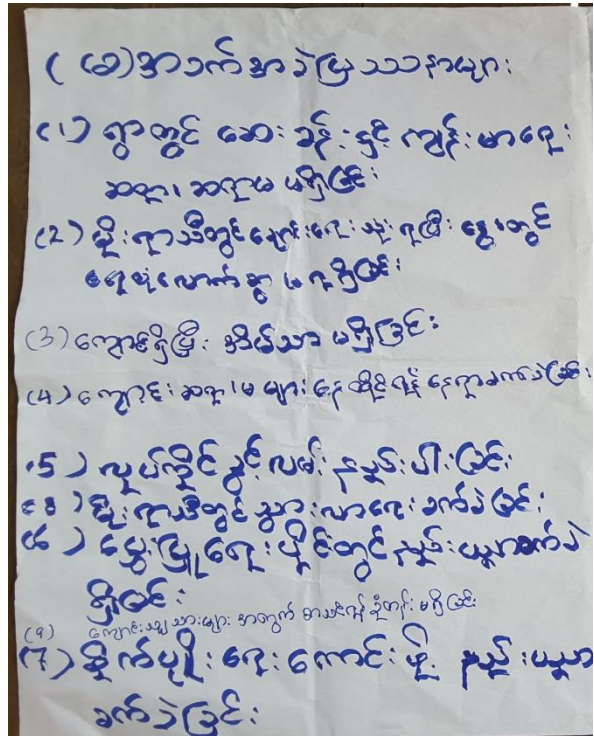 (ခ) အခက်အခဲပြဿနာများ
(1) ရွာတွင် ဆေးခန်းနှင့် ကျန်းမာရေး
ဆရာ၊ ဆရာမ မရှိခြင်း
(2) မိုးရာသီတွင် ချောင်းရေသုံးရပြီး နွေတွင်
ရေလုံလောက်စွာ မရရှိခြင်း
(3) ကျောင်းရှိပြီး အိမ်သာ မရှိခြင်း
(4) ကျောင်းဆရာမများ နေထိုင်ရန် နေရာခက်ခဲခြင်း
(5) လုပ်ကိုင်ခွင့်လမ်း နည်းပါးခြင်း
(8) မိုးရာသီတွင် သွားလာရေး ခက်ခဲခြင်း
(6) မွေးမြူရေးပိုင်းတွင် နည်းပညာခက်ခဲ
ရှိခြင်း
(9) ကျောင်းသူသားများ အတွက် စာသင်ရန် ခုံတန်း မရှိခြင်း
(7) စိုက်ပျိုးရေးကောင်းဖို့ နည်းပညာ
ခက်ခဲခြင်း